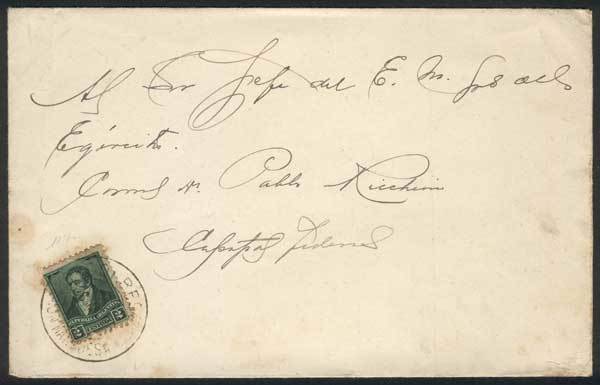 Al Sor Jefe del E. M. Gral del
Egército.
Coronel Dn. Pablo Riccheri
Capital Federal
REPUBLICA ARGENTINA
2 CENTAVOS 2